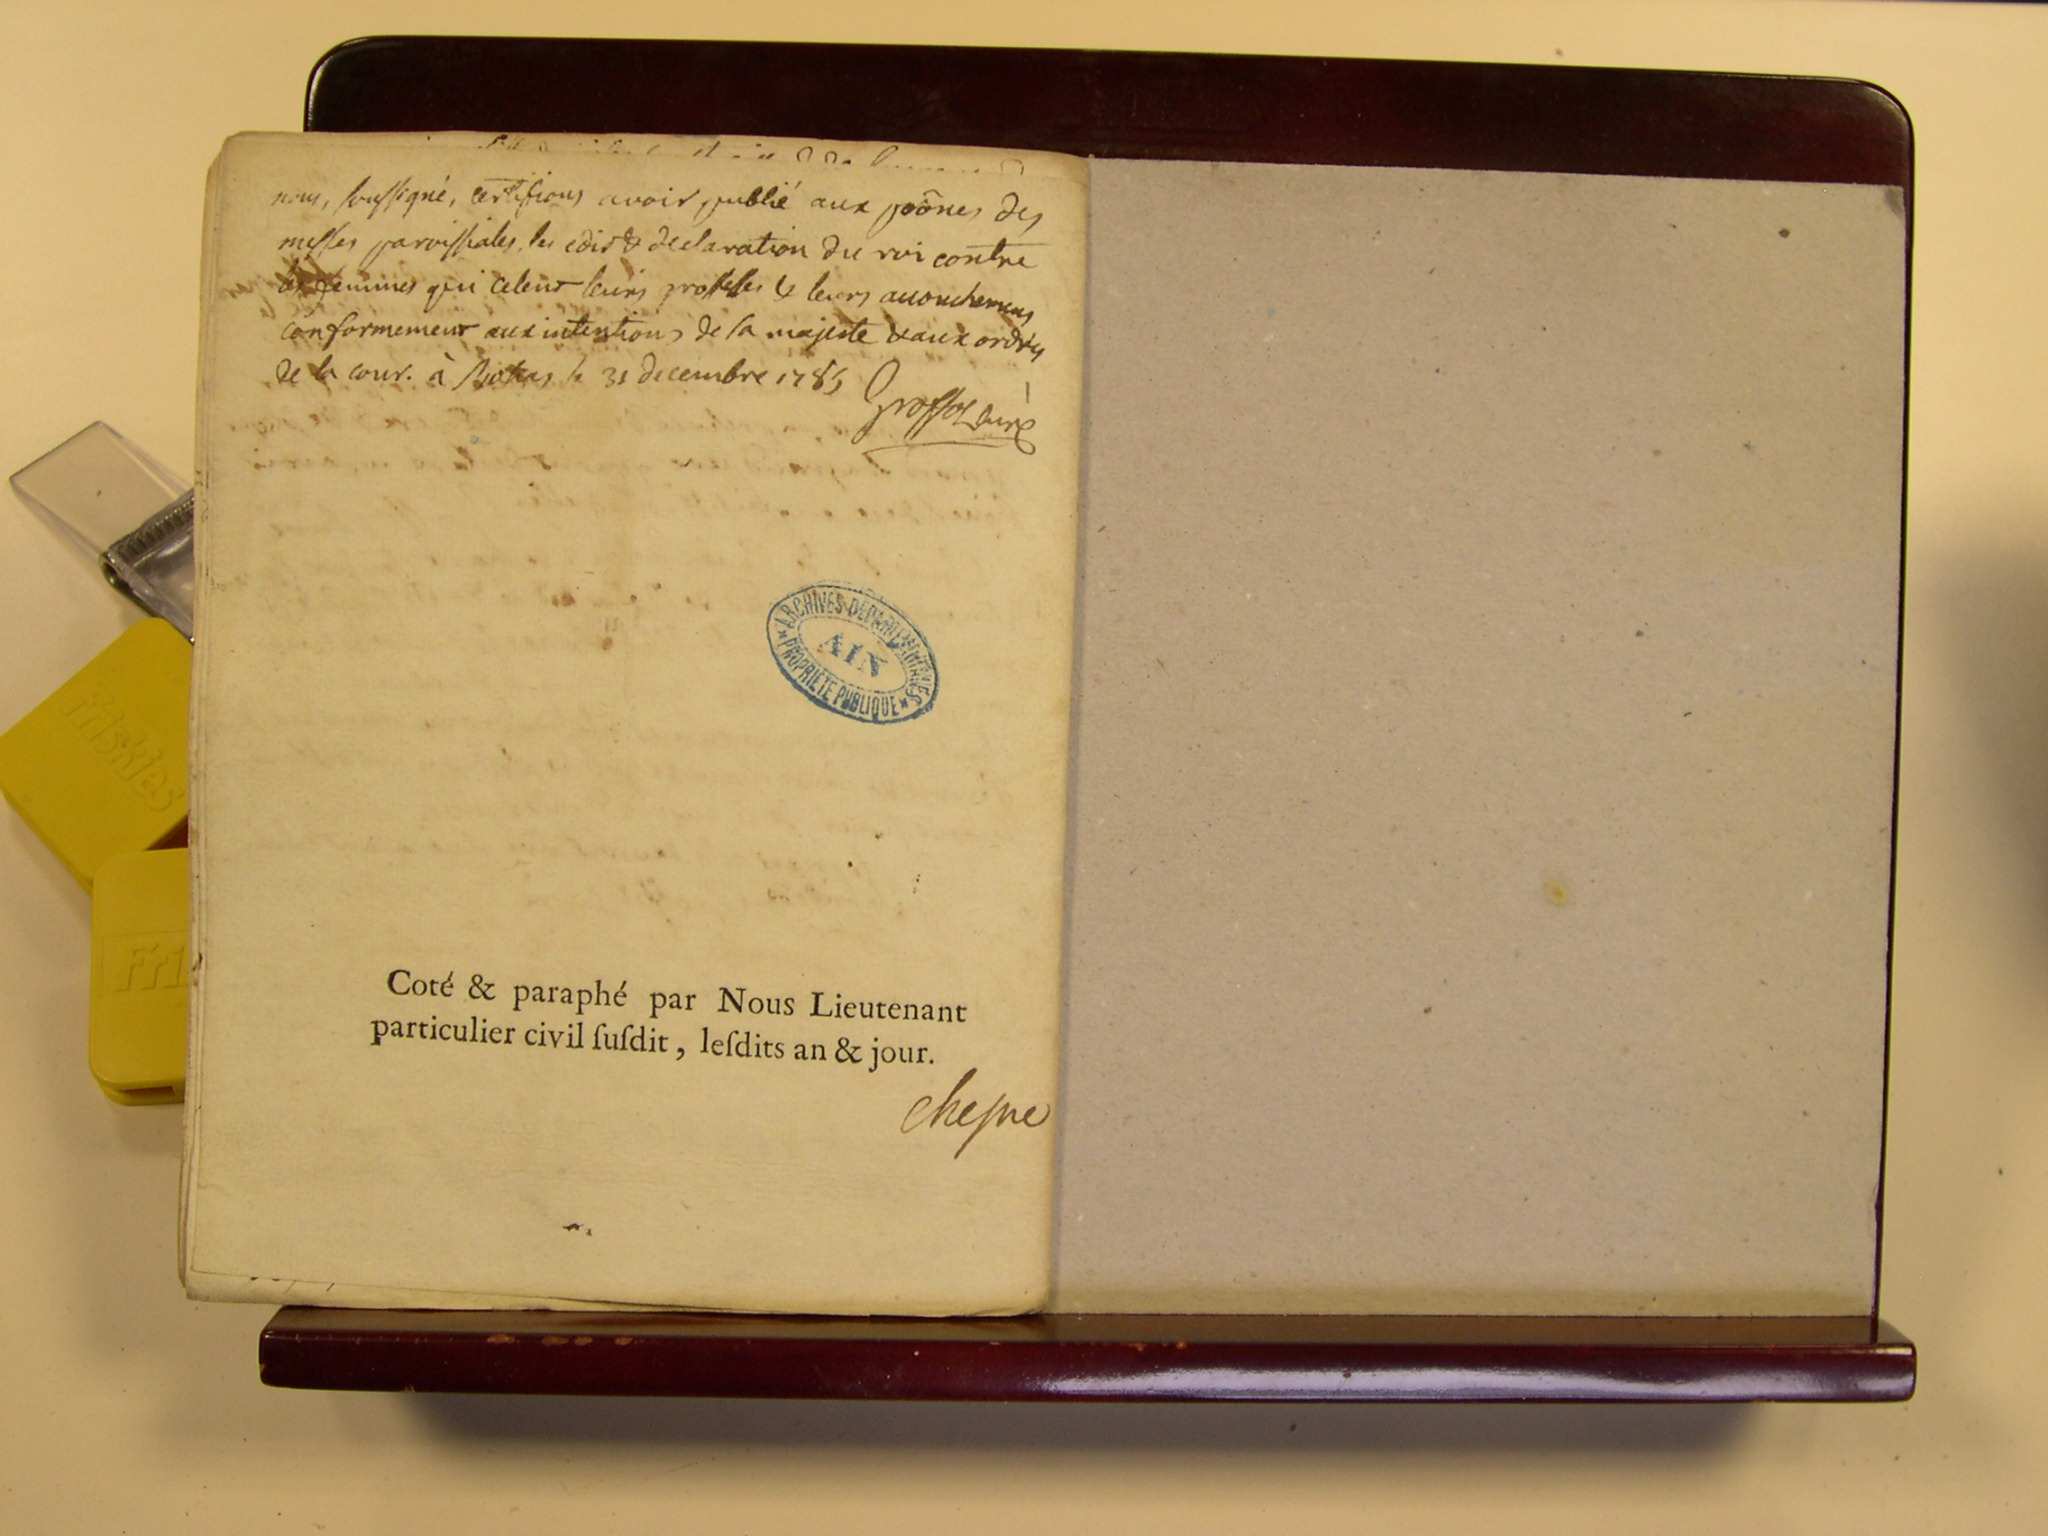 nous, soussigné, certifions avoir publié aux prônes des
messes paroissiales, les edit & declaration du roi contre
les femmes qui celent leurs grossesses & leurs accouchemens
conformement aux intentions de sa majesté & aux ordres
de la cour. à le 31 decembre 1785
curé
ARCHIVES DEPARTEMENTALES
AIN
* PROPRIETE PUBLIQUE *
Coté & paraphé par Nous Lieutenant
particulier civil ſuſdit, leſdits an & jour.
chesne
friskies
Fri